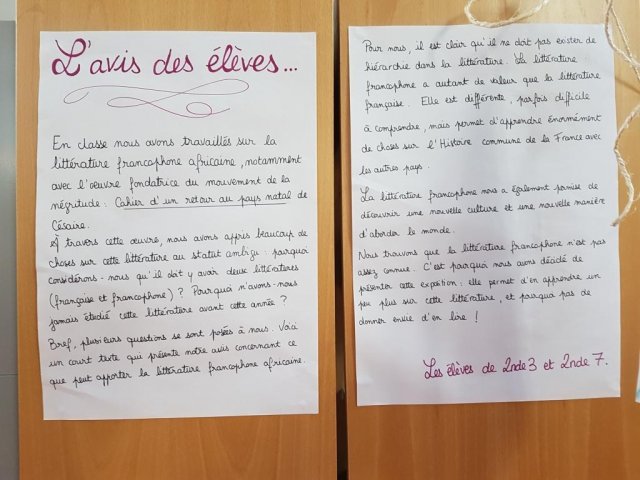 L'avis des élèves...
En classe nous avons travaillés sur la
littérature francophone africaine, notamment
avec l'oeuvre fondatrice du mouvement de la
négritude : Cahier d'un retour au pays natal de
Césaire.
À travers cette œuvre, nous avons appris beaucoup de
choses sur cette littérature au statut ambigu : pourquoi
considérons-nous qu'il doit y avoir deux littératures
(française et francophone) ? Pourquoi n'avons-nous
jamais étudié cette littérature avant cette année ?
Bref, plusieurs questions se sont posées à nous. Voici
un court texte qui présente notre avis concernant ce
que peut apporter la littérature francophone africaine.
Pour nous, il est clair qu'il ne doit pas exister de
hiérarchie dans la littérature. La littérature
francophone a autant de valeur que la littérature
française. Elle est différente, parfois difficile
à comprendre, mais permet d'apprendre énormément
de choses sur l'Histoire commune de la France avec
les autres pays.
La littérature francophone nous a également permise de
découvrir une nouvelle culture et une nouvelle manière
d'aborder le monde.
Nous trouvons que la littérature francophone n'est pas
assez connue. C'est pourquoi nous avons décidé de
présenter cette exposition : elle permet d'en apprendre un
peu plus sur cette littérature, et pourquoi pas de
donner envie d'en lire !
Les élèves de 2nde 3 et 2nde 7.